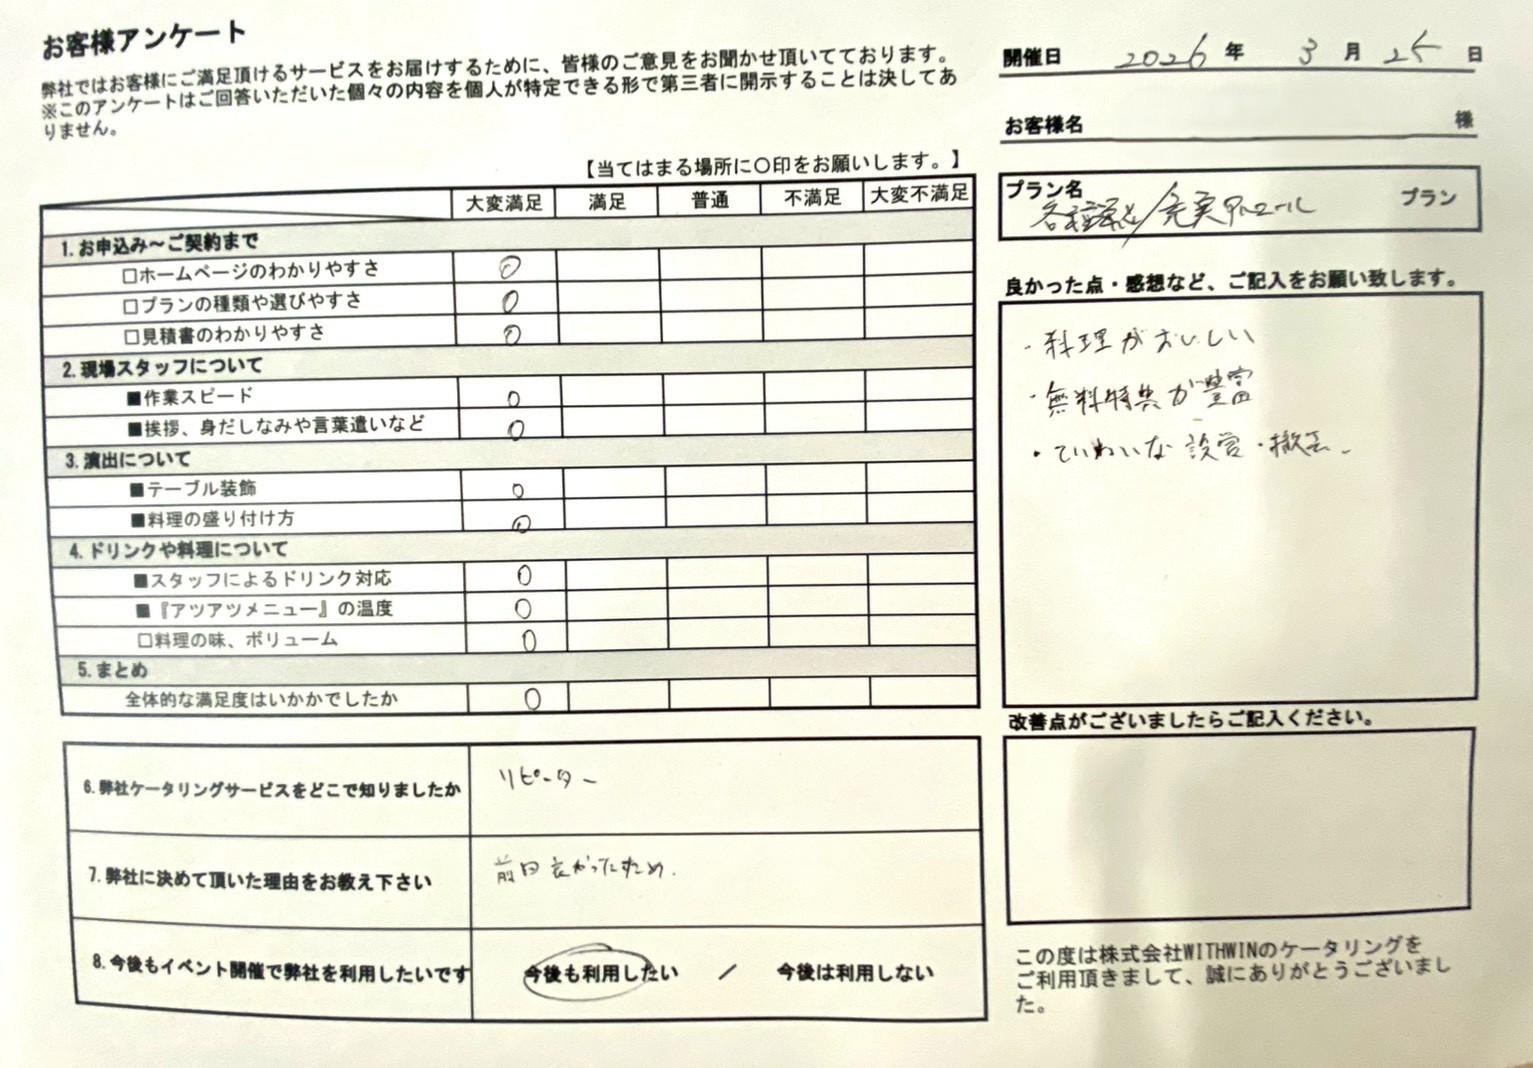 お客様アンケート
弊社ではお客様にご満足頂けるサービスをお届けするために、皆様のご意見をお聞かせ頂いてております。
※このアンケートはご回答いただいた個々の内容を個人が特定できる形で第三者に開示することは決してあ
りません。
【当てはまる場所に〇印をお願いします。】
大変満足 満足 普通 不満足 大変不満足
1.お申込み～ご契約まで
□ホームページのわかりやすさ ○
□プランの種類や選びやすさ ○
□見積書のわかりやすさ ○
2.現場スタッフについて
■作業スピード ○
■挨拶、身だしなみや言葉遣いなど ○
3.演出について
■テーブル装飾 ○
■料理の盛り付け方 ○
4.ドリンクや料理について
■スタッフによるドリンク対応 ○
■『アツアツメニュー』の温度 ○
□料理の味、ボリューム ○
5.まとめ
全体的な満足度はいかかでしたか ○
6.弊社ケータリングサービスをどこで知りましたか リピーター
7.弊社に決めて頂いた理由をお教え下さい 前回良かったため.
8.今後もイベント開催で弊社を利用したいです 今後も利用したい ／ 今後は利用しない
開催日 2026年 3月25日
お客様名 様
プラン名
充実アルコール プラン
良かった点・感想など、ご記入をお願い致します。
・料理がおいしい
・無料特典が豊富
・ていねいな設営・撤去。
改善点がございましたらご記入ください。
この度は株式会社WITHWINのケータリングを
ご利用頂きまして、誠にありがとうございまし
た。